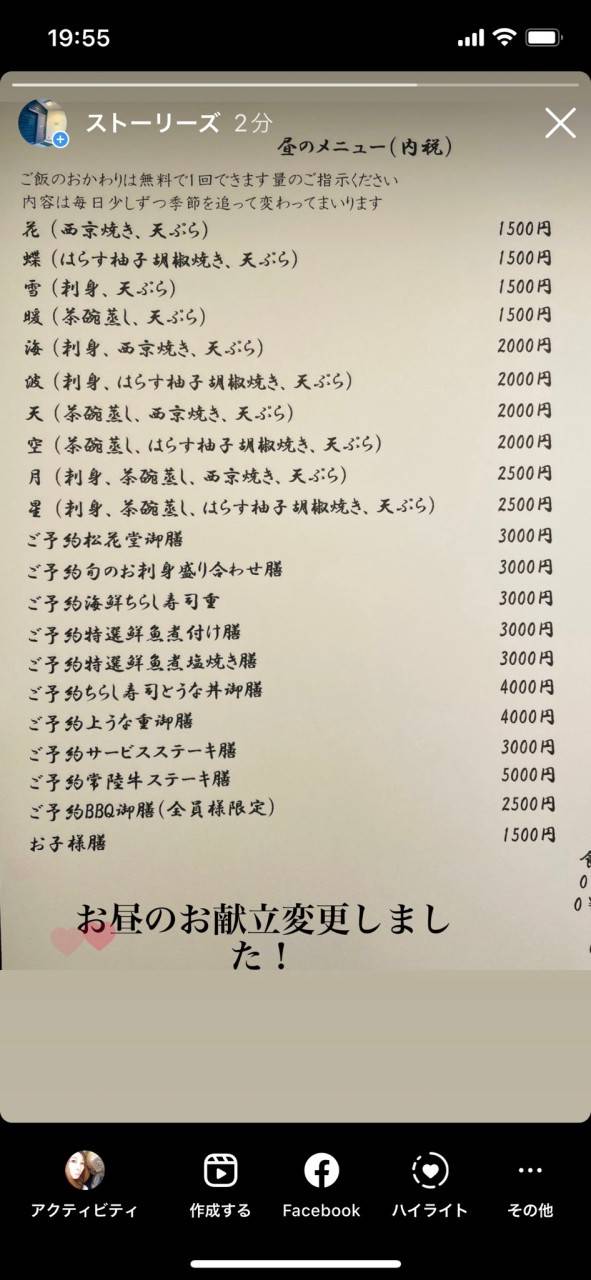 19:55
ストーリーズ 2分
昼のメニュー(内税)
ご飯のおかわりは無料で1回できます量のご指示ください
内容は毎日少しずつ季節を追って変わってまいります
花(西京焼き、天ぷら) 1500円
蝶(はらす柚子胡椒焼き、天ぷら) 1500円
雪(刺身、天ぷら) 1500円
暖(茶碗蒸し、天ぷら) 1500円
海(刺身、西京焼き、天ぷら) 2000円
波(刺身、はらす柚子胡椒焼き、天ぷら) 2000円
天(茶碗蒸し、西京焼き、天ぷら) 2000円
空(茶碗蒸し、はらす柚子胡椒焼き、天ぷら) 2000円
月(刺身、茶碗蒸し、西京焼き、天ぷら) 2500円
星(刺身、茶碗蒸し、はらす柚子胡椒焼き、天ぷら) 2500円
ご予約松花堂御膳 3000円
ご予約旬のお刺身盛り合わせ膳 3000円
ご予約海鮮ちらし寿司重 3000円
ご予約特選鮮魚煮付け膳 3000円
ご予約特選鮮魚煮塩焼き膳 3000円
ご予約ちらし寿司とうな丼御膳 4000円
ご予約上うな重御膳 4000円
ご予約サービスステーキ膳 3000円
ご予約常陸牛ステーキ膳 5000円
ご予約BBQ御膳(全員様限定) 2500円
お子様膳 1500円
お昼のお献立変更しまし
た!
アクティビティ 作成する Facebook ハイライト その他